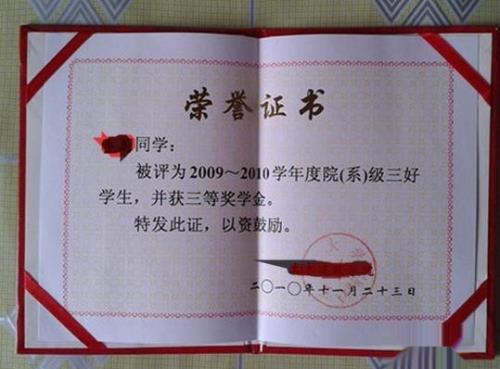 荣誉证书
同学：
被评为2009～2010学年度院(系)级三好
学生，并获三等奖学金。
特发此证，以资鼓励。
大学
二〇一〇年十一月二十三日